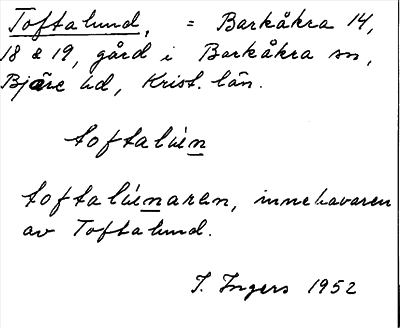 Toftalund, = Barkåkra 14,
18 & 19, gård i Barkåkra sn,
Bjäre hd, Krist. län.
innehavaren
av Toftalund.
I. Ingers 1952